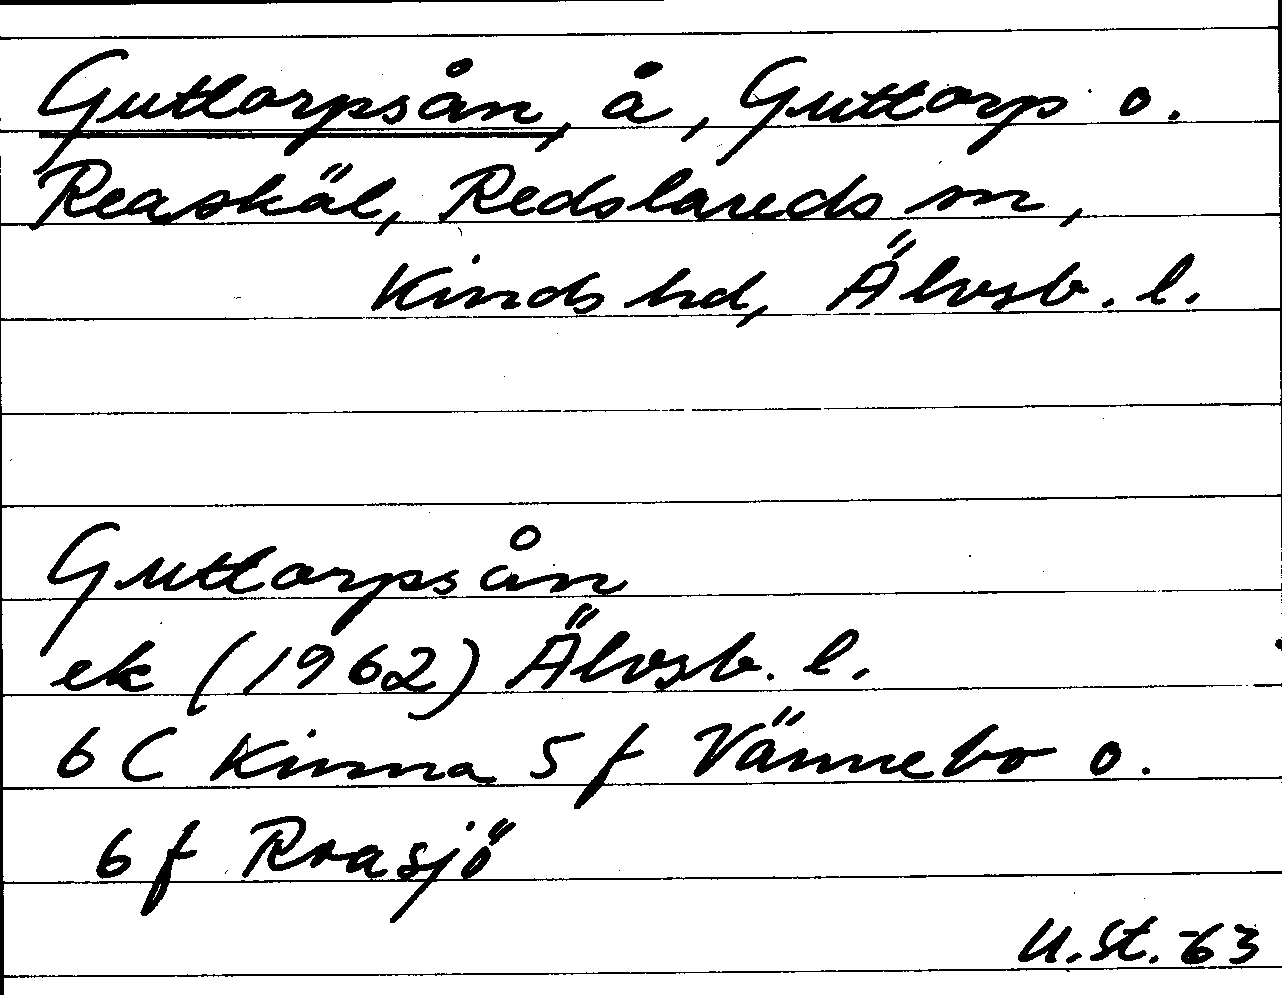 Guttorpsån, å, Guttorp o.
Reaskäl, Redslareds sn,
Kinds hd, Älvsb. l.
Guttorpsån
ek (1962) Älvsb. l.
6 C Kinna 5 f Vännebo o.
6 f Roasjö
U.St. -63